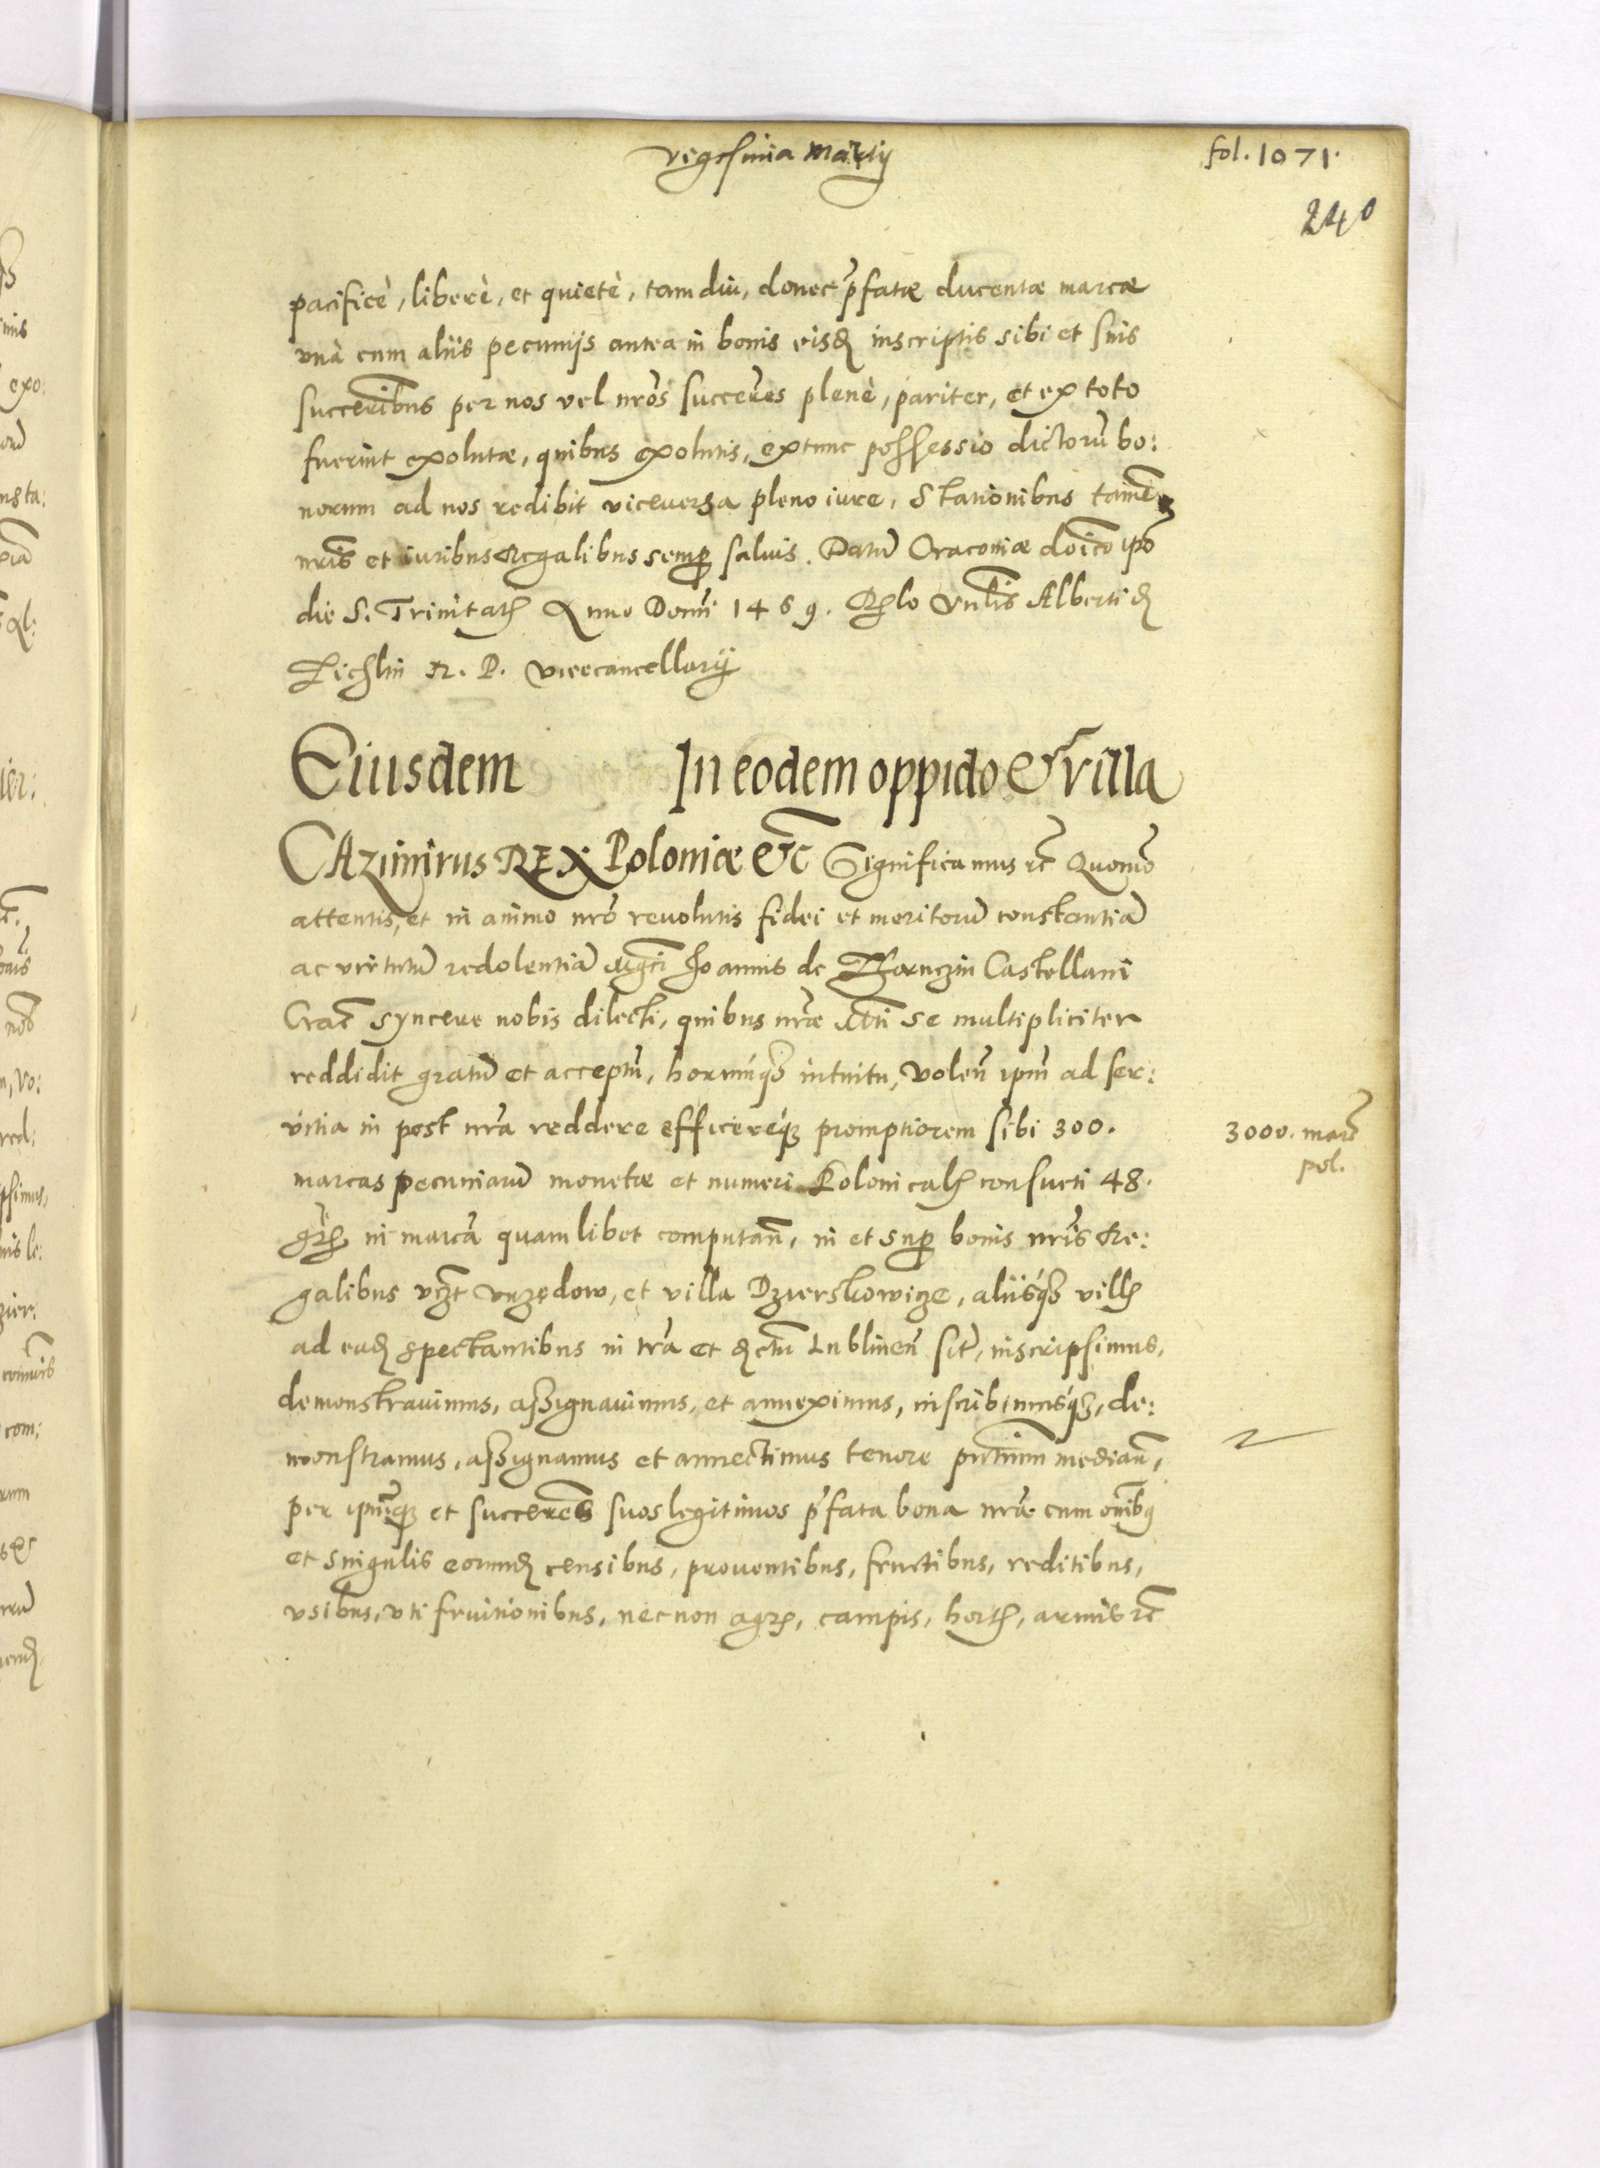 vigesima Martij
fol. 1071.
240
pacificè, liberè, et quietè, tamdiu, donec p̃fatæ ducentæ marcæ
vnà cum aliis pecunijs antea in bonis eisd inscriptis sibi et suis
succerībus per nos vel nr̃os succer̃es plenè, pariter, et ex toto
fuerint exolutæ, quibus exolutis, extunc possessio dictorū bo:
norum ad nos redibit viceuersa pleno iure, Stationibus tamē
nr̃is et iuribus Regalibus semp saluis. Datū Cracouiæ doīco ipo
die S. Trinitat Anno Domī 1469. Rlo Vnlis Alberti d
Zichlin R. P. vicecancellarij
Eiusdem In eodem oppido & villa
CAzimirus REX Poloniæ &c Significamus rc̃ Quomō
attentis, et in animo nrō reuolutis fidei et meritorū constantiā
ac virtutū redolentiā Mgci Joannis de Tharnczin Castellani
Crac̃ syncere nobis dilecti, quibus nr̃æ Mti se multipliciter
reddidit gratū et acceptū, horumq́ intuitu, volen̄ ipm̄ ad ser:
vitia in post nr̃a reddere efficereq́ promptiorem sibi 300.
3000. marc̃
pol.
marcas pecuniarū monetæ et numeri Polonical consueti 48.
gr̃ in marcā quamlibet computan̄, in et sup bonis nr̃is Re:
galibus vzt vrzędow, et villa Dzierskowicze, aliisq́ vill
ad ead spectantibus in tr̃a et dctu Lublinen̄ sit̃, inscripsimus,
demonstrauimus, assignauimus, et anneximus, inscribimusq́, de:
monstramus, assignamus et annectimus tenore pn̄tium median̄,
per ipm̄q et succerēs suos legitimos p̃fata bona nr̃a cum om̄ibus
et singulis eorund censibus, prouentibus, fructibus, reditibus,
vsibus, vti fruitionibus, necnon agr, campis, hort, aruis rc̃